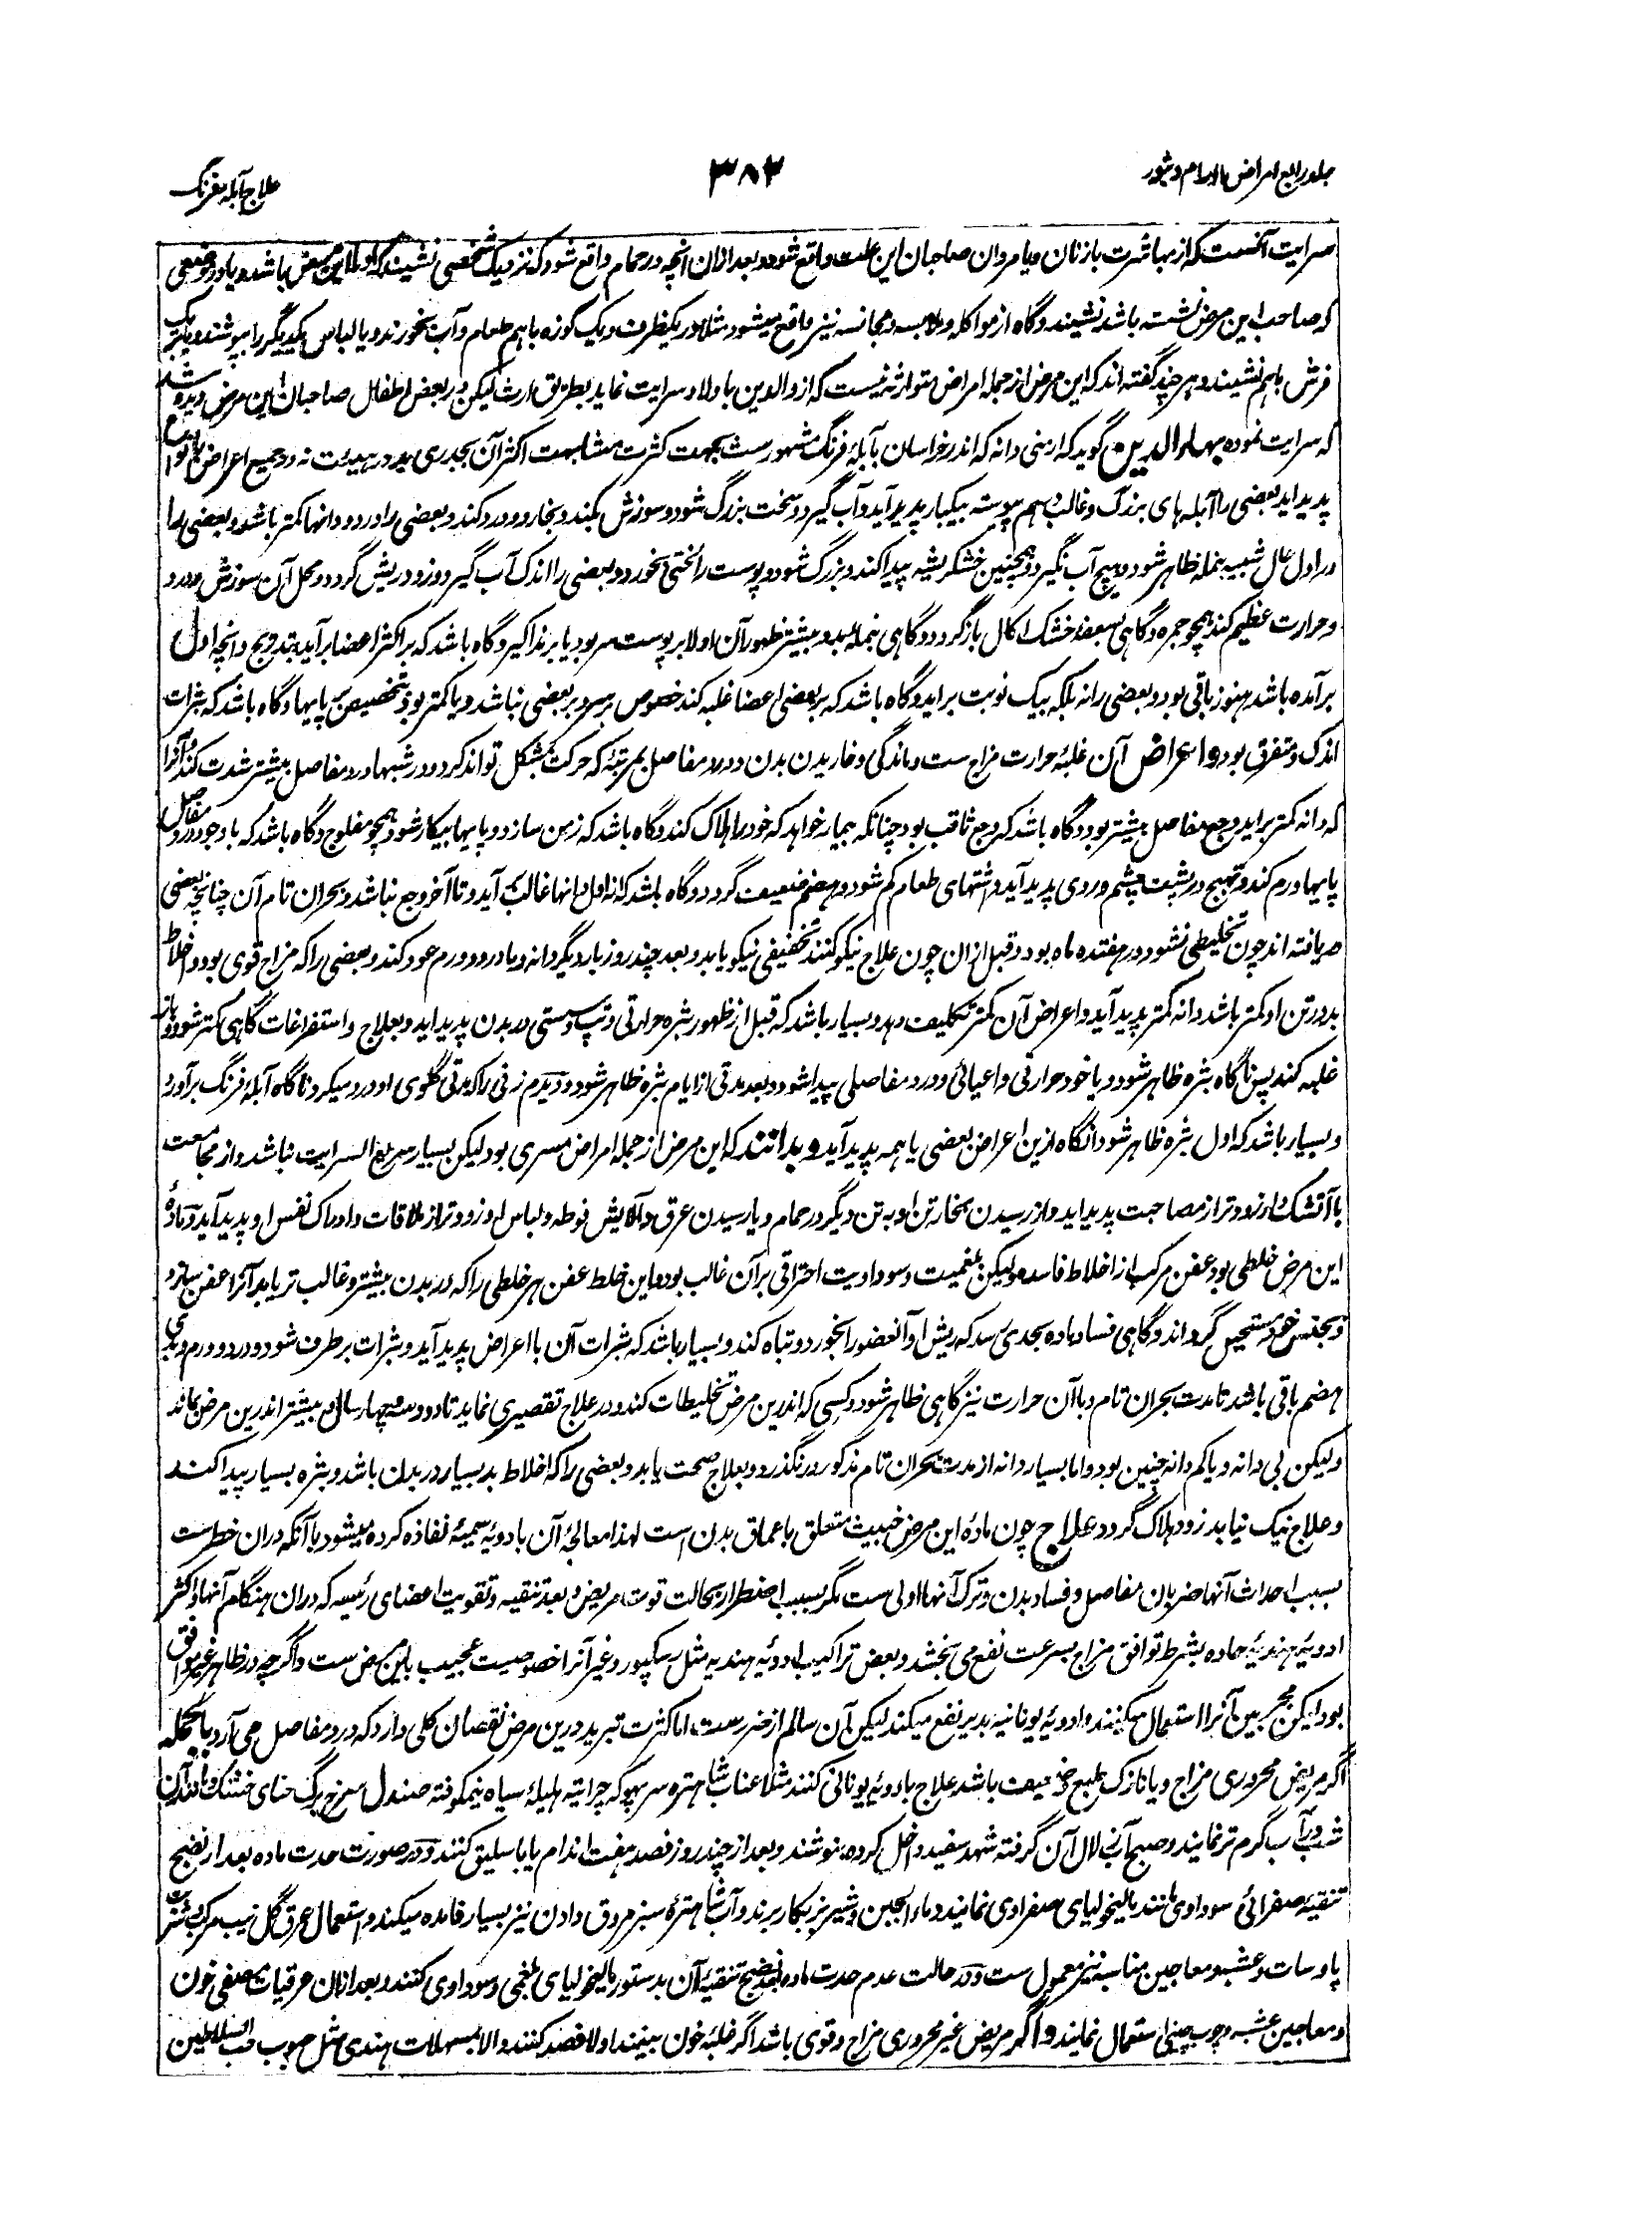 جلد رابع امراض اورام و بثور
۳۸۳
علاج آبله فرنگ
سرایت آنست که از مباشرت با زنان و یا مردان صاحبان این علت واقع شود و بعد ازان آنچه در حمام واقع شود که نزدیک شخصی نشیند که او را این مرض باشد و یا در موضعی
که صاحب این مرض نشسته باشد نشیند و گاه از مواکله و ملابسه و مجانسه نیز واقع میشود مثلا در یکظرف و یک کوزه باهم طعام و آب بخورند و یا لباس یکدیگر را بپوشند و یا بر یک
فرش باهم نشیند و هر چند گفته اند که این مرض از جمله امراض متوارثه نیست که از والدین باولاد سرایت نماید بطریق ارث لیکن در بعض اطفال صاحبان این مرض دیده شد
که سرایت نموده بهاء الدین گوید که ارمنی دانه که اندر خراسان بآبله فرنگ مشهور ست بجهت کثرت مشابهت اکثر آن بجدری بود در هیئت نه در جمیع اعراض بانواع
پدید اید بعضی را آبله های بزرگ و غالب و بهم پیوسته بیکبار پدید آید و آب گیرد و سخت بزرگ شود و سوزش کند و بخارد و درد کند و بعضی را درد دانها کمتر باشد و بعضی را
در اول حال شبیه بنمله ظاهر شود و هیچ آب نگیرد و همچنین خشکریشه پیدا کند و بزرگ شود و پوست را لختی بخورد و بعضی را اندک آب گیرد و زود ریش گردد و محل آن سوزش و درد
و حرارت عظیم کند همچو جمره و گاهی بسعفه خشک اکال بازگردد و گاهی بنمله بود و بیشتر ظهور آن اولا بر پوست سر بود یا بر ذکر و گاه باشد که بر اکثر اعضا برآید بتدریج و آنچه اول
برآمده باشد هنوز باقی بود و بعضی را نه بلکه بیک نوبت براید و گاه باشد که بر بعضی اعضا غلبه کند خصوص بر سر و بر بعضی نباشد و یا کمتر بود بتخصیص بر پایها و گاه باشد که بثرات
اندک و متفرق بود و اعراض آن غلبهٔ حرارت مزاج ست و ماندگی و خاریدن بدن و درد مفاصل بمرتبهٔ که حرکت بمشکل تواند کرد و در شبها درد مفاصل بیشتر شدت کند و آنرا
که دانه کمتر براید وجع مفاصل بیشتر بود و گاه باشد که وجع ثاقب بود چنانکه بیمار خواهد که خود را هلاک کند و گاه باشد که زمن سازد و پایها بیکار شود همچو مفلوج و گاه باشد که با وجود درد مفاصل
پایها ورم کند و تهیج در پشت چشم و روی پدید آید و اشتهای طعام کم شود و هضم ضعیف گردد و گاه باشد که از اول دانها غالب آید و تا آخر وجع نباشد و بحران تام آن چنانچه بعضی
دریافته اند چون تخلیطی نشود در هفتده ماه بود و قبل ازان چون علاج نیکو کنند تخفیفی نیکو یابد و بعد چند روز بار دیگر دانه و یا درد و ورم عود کند و بعضی را که مزاج قوی بود و اخلاط
بد در تن او کمتر باشد دانه کمتر پدید آید و اعراض آن کمتر تکلیف دهد و بسیار باشد که قبل از ظهور بثره حرارتی و تپ و سستی در بدن پدید اید و بعلاج و استفراغات گاهی کمتر شود و باز
غلبه کند پس ناگاه بثره ظاهر شود و یا خود حرارتی و اعیائی و درد مفاصلی پیدا شود و بعد مدتی از ایام بثره ظاهر شود و دیدم زنی را که مدتی گلوی او درد میکرد ناگاه آبلهٔ فرنگ برآورد
و بسیار باشد که اول بثره ظاهر شود آنگاه ازین اعراض بعضی یا همه پدید آید و بدانند که این مرض از جمله امراض مسری بود لیکن بسیار سریع السرایت نباشد و از مجامعت
با آتشک دار زودتر از مصاحبت پدید اید و از رسیدن بخار تن او به تن دیگر در حمام و یا رسیدن عرق و آلایش فوطه و لباس او زودتر از ملاقات و ادراک نفس او پدید آید و مادهٔ
این مرض خلطی بود عفن مرکب از اخلاط فاسده و لیکن بلغمیت و سوداویت احتراقی برآن غالب بود و این خلط عفن هر خلطی را که در بدن بیشتر و غالب تر یابد آنرا عفن سازد
و بجنس خود مستحیل گرداند و گاهی فساد ماده بحدی رسد که ریش او آنعضو را بخورد و تباه کند و بسیار باشد که بثرات آن با اعراض پدید آید و بثرات برطرف شود و درد و ورم و بدی
هضم باقی باشد تا مدت بحران تام و با آن حرارت نیز گاهی ظاهر شود و کسی که اندرین مرض تخلیطات کند و در علاج تقصیری نماید تا دو و سه و چهار سال و بیشتر اندرین مرض بماند
و لیکن بی دانه و یا کم دانه چنین بود و اما بسیار دانه از مدت بحران تام مذکور در نگذرد و بعلاج صحت یابد و بعضی را که اخلاط بد بسیار در بدن باشد و بثره بسیار پیدا کند
و علاج نیک نیابد زود هلاک گردد علاج چون مادهٔ این مرض خبیث متعلق باعماق بدن ست لهذا معالجهٔ آن بادویهٔ سمیهٔ نفاذه کرده میشود با آنکه دران خطرست
بسبب احداث آنها ضربان مفاصل و فساد بدن و ترک آنها اولی ست مگر بسبب اضطرار بحالت قوت مریض و بعد تنقیه و تقویت اعضای رئیسه که دران هنگام آنها و اکثر
ادویهٔ هندیهٔ حاده بشرط توافق مزاج بسرعت نفع می بخشد و بعض تراکیب ادویهٔ هندیه مثل رسکپور و غیر آنرا خصوصیت عجیب باین مرض ست و اگرچه در ظاهر غیر موافق
بود لیکن مجربین آنرا استعمال میکنند و ادویهٔ یونانیه بدیر نفع میکند لیکن آن سالم از ضررست اما کثرت تبرید درین مرض نقصان کلی دارد که درد مفاصل می آرد بالجمله
اگر مریض محروری مزاج و یا نازک طبع ضعیف باشد علاج بادویهٔ یونانی کنند مثلا عناب شاهتره سرپهوکه چرایته هلیلهٔ سیاه نیمکوفته صندل سرخ برگ حنای خشک و مانند آن
شب در آب گرم تر نمایند و صبح آب زلال آن گرفته شهد سفید داخل کرده بنوشند و بعد از چند روز فصد هفت اندام یا باسلیق کنند و در صورت حدت ماده بعد از نضج
تنقیهٔ صفرائی سوداوی مانند مالیخولیای صفراوی نمایند و ماء الجبن و شیر بز بکار برند و آب شاهترهٔ سبز مروق دادن نیز بسیار فائده میکند و استعمال عرق گل نیب مرکب و شربت
پاوسات و عشبه و معاجین مناسبه نیز معمول ست و در حالت عدم حدت ماده بعد نضج تنقیهٔ آن بدستور مالیخولیای بلغمی و سوداوی کنند و بعد ازان عرقیات مصفی خون
و معاجین عشبه و چوب چینی استعمال نمایند و اگر مریض غیر محروری مزاج و قوی باشد اگر غلبهٔ خون بینند اولا فصد کنند و الا بمسهلات هندی مثل حبوب حب السلاطین